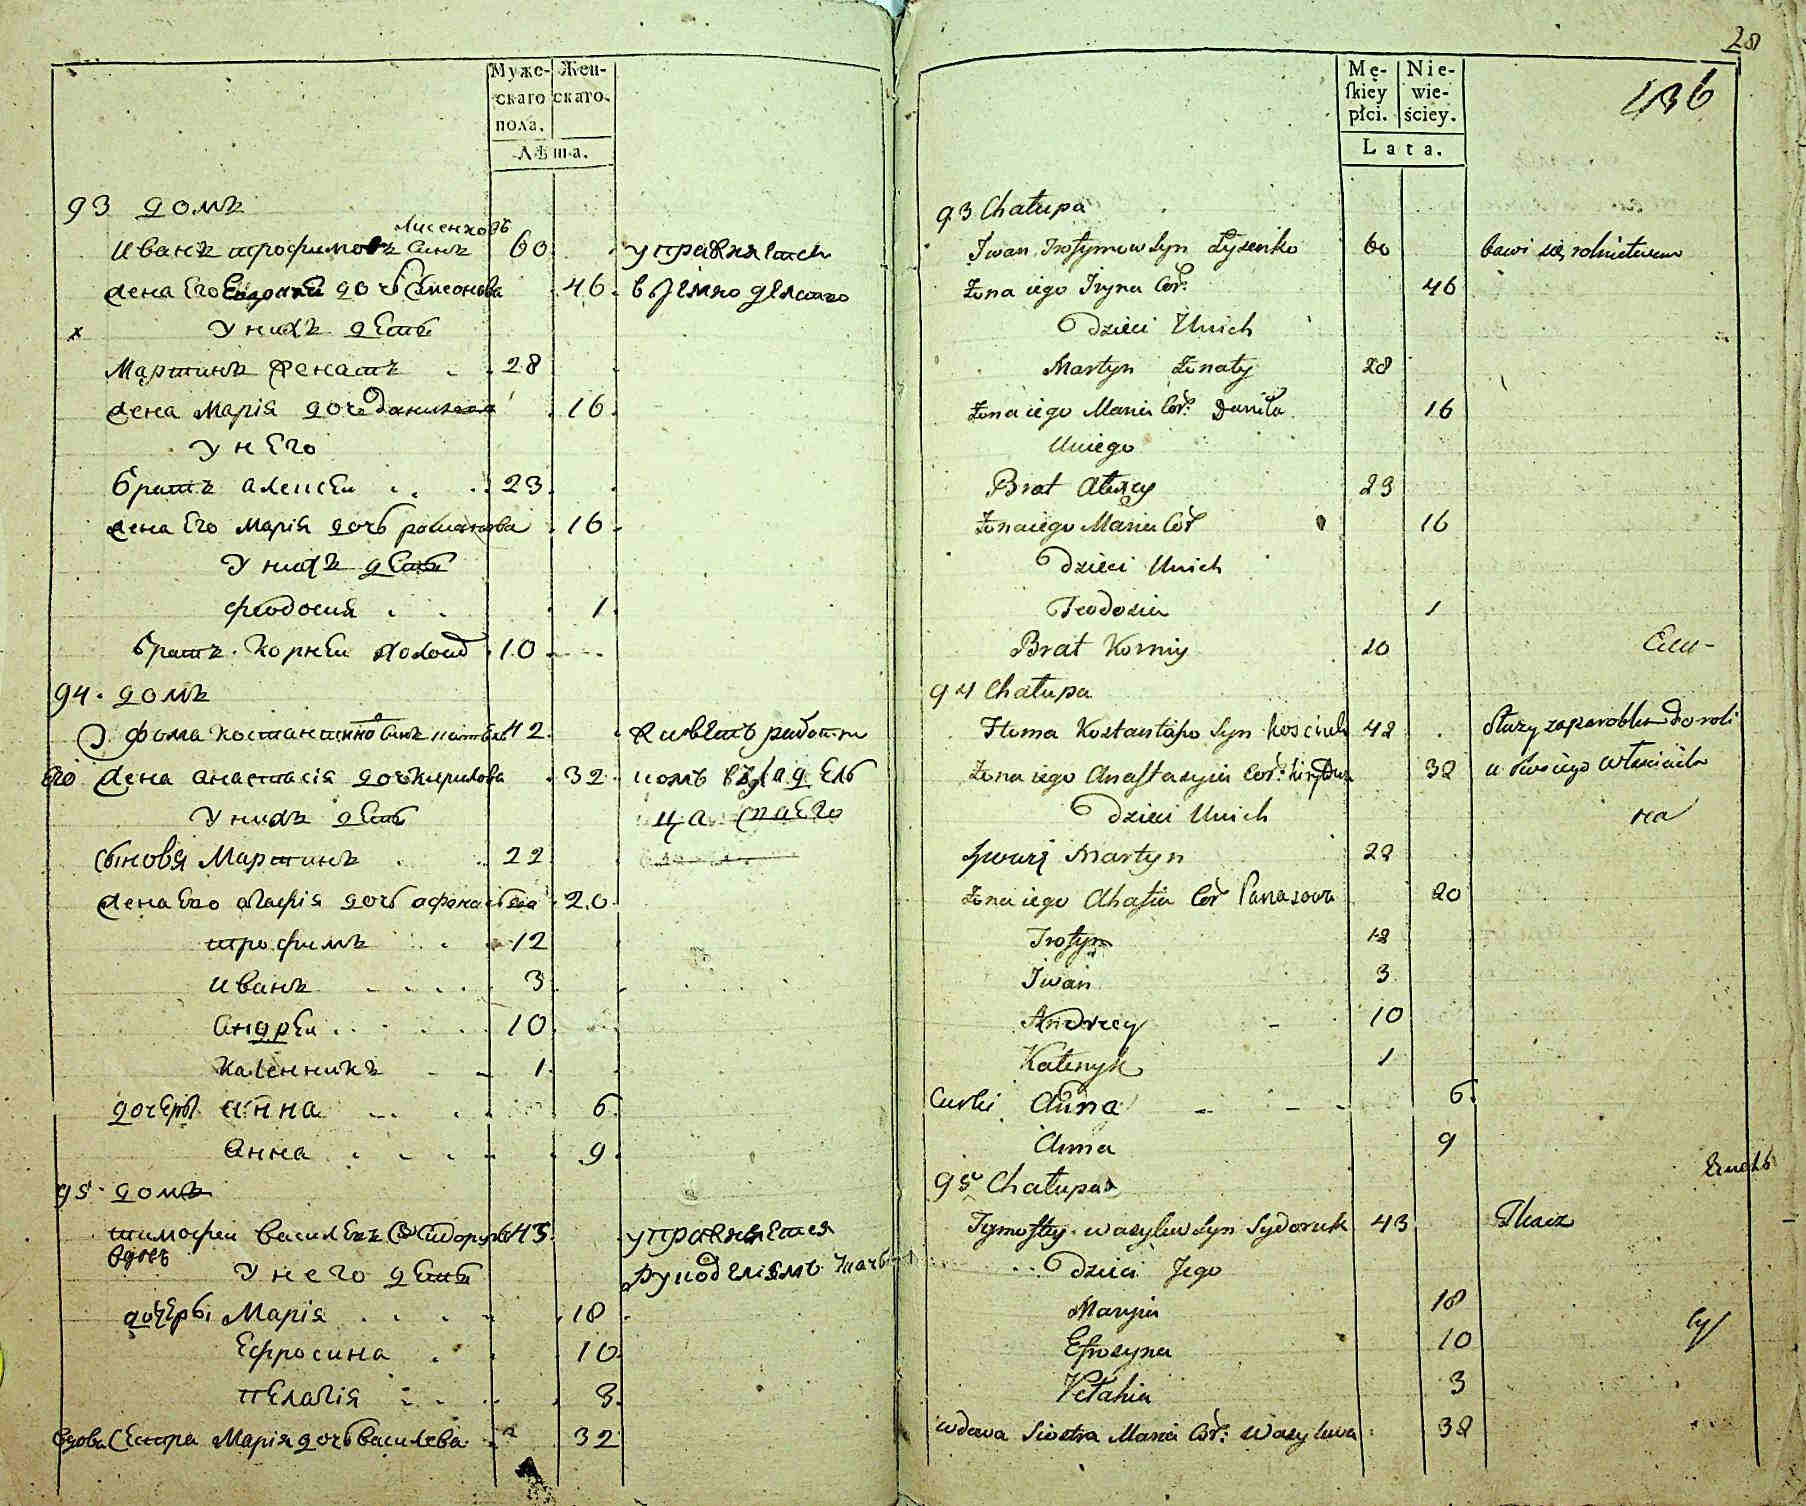 28
136
Муже-
скаго
пола.
Жен-
скаго.
Лѣта.
93 домъ
Лисенковъ
Иванъ трофимовъ синъ 60 управляется
жена Его дочь Симеонова 46 в земно
У нихъ дети
Мартинъ женатъ 28
жена Марія доче Данилова 16
У нЕго
братъ алеисеи 23
жена Его Марія дочь романова 16
У нихъ дети
феодосия 1
братъ Корнеи холост 10
94 домъ
фома костантиновъ синъ 42 живетъ работни
Его жена анастасія дочь кирилова 32 комъ въ владель
У нихъ дети ца своЕго
сыновя Мартинъ 22
жена Его агафія дочь афанасьева 20
трофимъ 12
иванъ 3
андреи 10
каленникъ 1
дочеры анна 6
анна 9
95 домъ
тимофеи василевъ Сидорукъ 43 управляется
вдовъ
У него дети рукоделіямъ ткачь
дочеры Марія 18
Ефросина 10
пелагія 3
вдова сестра Марія дочь василева 32
Mę-
ſkiey
płci.
Nie-
wie-
ściey.
Lata.
93 Chałupa
Iwan Trofymow Syn Łysenko 60 bawi się rolnictwem
Żona iego Iryna Cór: 46
Dzieci Unich
Martyn Żonaty 28
Żona iego Maria Cór: Daniła 16
Uniego
Brat Ałexey 23
Żona iego Maria Cór 16
Dzieci Unich
Teodosia 1
Brat Korniy 10
94 Chałupa
Homa Kostantego Syn Kościuk 42 Służy zaparobka do roli
Żona iego Anastazyia Cór: 32 u swoiego własciciela
Dzieci Unich
Synowi Martyn 22
Żona iego Ahafia Cór Panasowa 20
Trofym 12
Iwan 3
Andrzey 10
Kałenyk 1
Curki Anna 6
Anna 9
95 Chałupa
Tymofiy wasylow Syn Sydoruk 43 Tkacz
Dzieci Jego
Maryia 18
Efrosyna 10
Pełahia 3
wdowa Siostra Maria Cór: Wasylowa 32